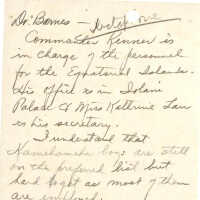 Dr. Barnes —
Commander Kenner is
in charge of the personnel
for the Equatorial Islands.
His office is in Iolani
Palace & Miss Kathrine Law
is his secretary.
I understand that
Kamehameha boys are still
on the preferred list but
hard to get as most of them
are employed.